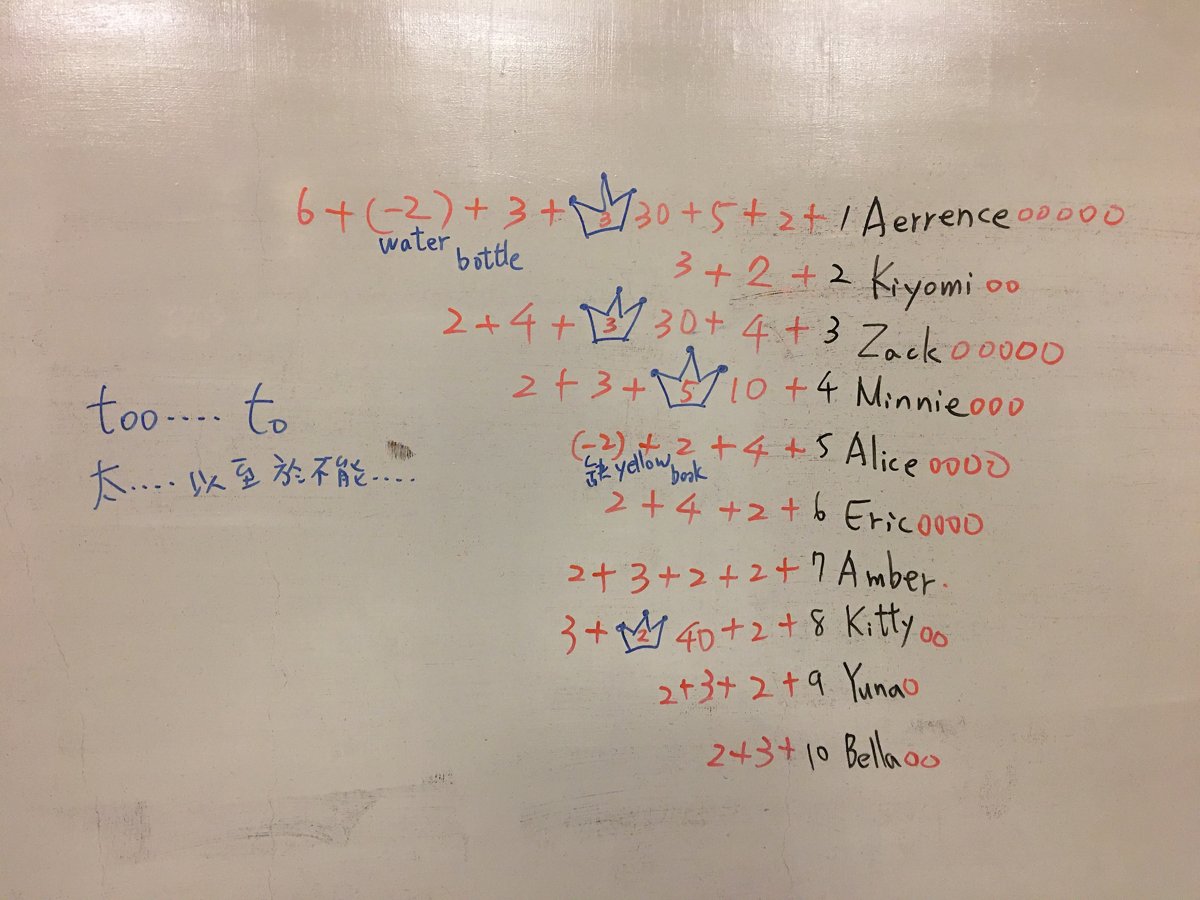 6 + (-2) + 3 + 3 30 + 5 + 2 + 1 Aerrence ooooo
water bottle
3 + 2 + 2 Kiyomi oo
2 + 4 + 3 30 + 4 + 3 Zack ooooo
2 + 3 + 5 10 + 4 Minnie ooo
too.... to
(-2) + 2 + 4 + 5 Alice oooo
缺 yellow book
太.... 以至於不能....
2 + 4 + 2 + 6 Eric oooo
2 + 3 + 2 + 2 + 7 Amber.
3 + 2 40 + 2 + 8 Kitty oo
2 + 3 + 2 + 9 Yuna o
2 + 3 + 10 Bella oo